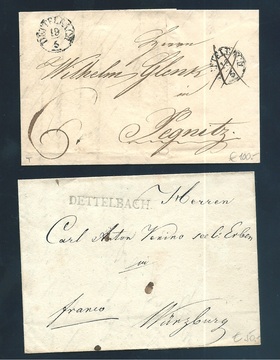 DETTELBACH
19
5
Herrn
Wilhelm Glenk
in
Pegnitz
6
€ 100.-
DETTELBACH.
Herren
Carl Anton Vorino seel: Erben
in
franco
Würzburg